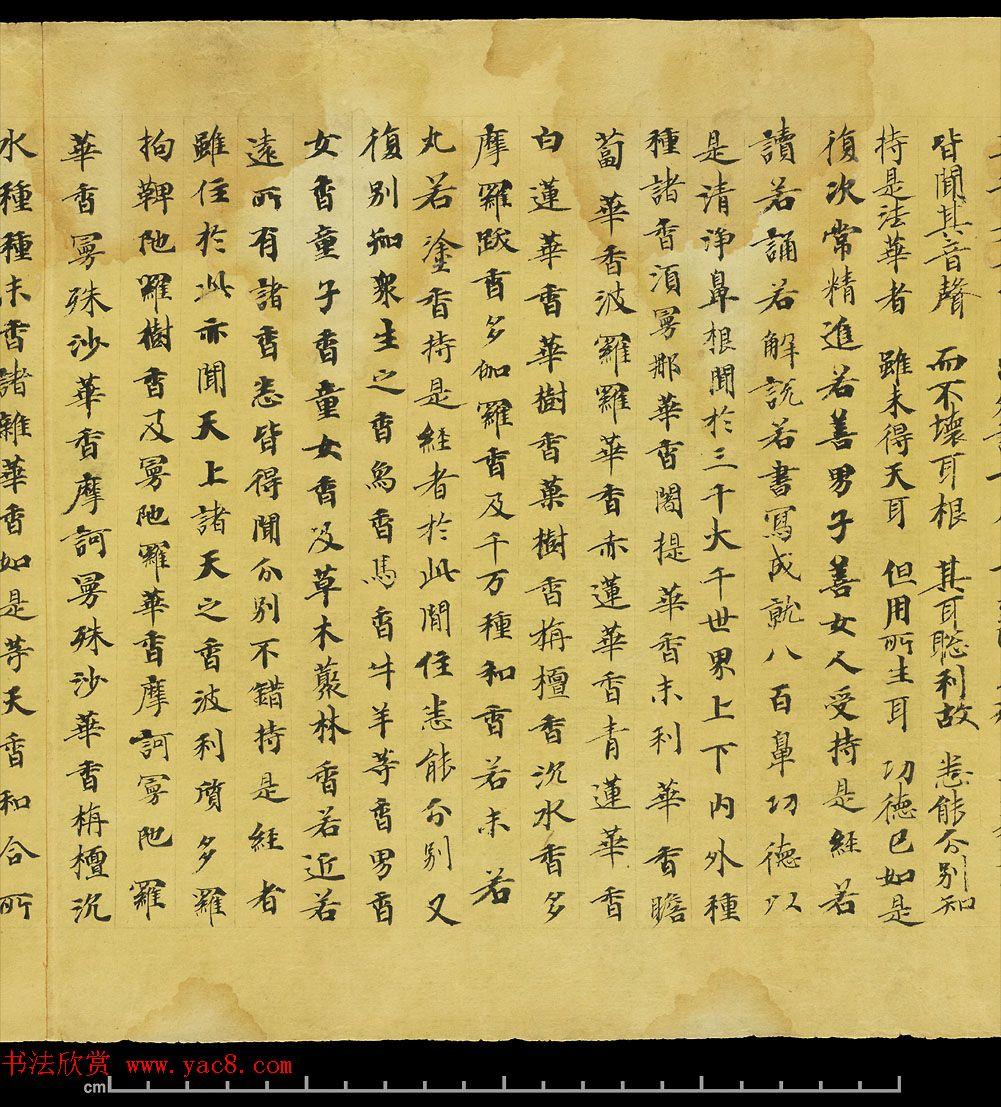 皆聞其音聲　而不壞耳根　其耳聰利故　悉能分別知
持是法華者　雖未得天耳　但用所生耳　功德已如是
復次常精進若善男子善女人受持是經若
讀若誦若解說若書寫成就八百鼻功德以
是清淨鼻根聞於三千大千世界上下內外種
種諸香須曼那華香闍提華香末利華香瞻
蔔華香波羅羅華香赤蓮華香青蓮華香
白蓮華香華樹香菓樹香栴檀香沉水香多
摩羅跋香多伽羅香及千万種和香若末若
丸若塗香持是經者於此間住悉能分別又
復別知衆生之香烏香馬香牛羊等香男香
女香童子香童女香及草木藂林香若近若
遠所有諸香悉皆得聞分別不錯持是經者
雖住於此亦聞天上諸天之香波利質多羅
拘鞞陁羅樹香及曼陁羅華香摩訶曼陁羅
華香曼殊沙華香摩訶曼殊沙華香栴檀沉
水種種末香諸雜華香如是等天香和合所
书法欣赏 www.yac8.com
cm